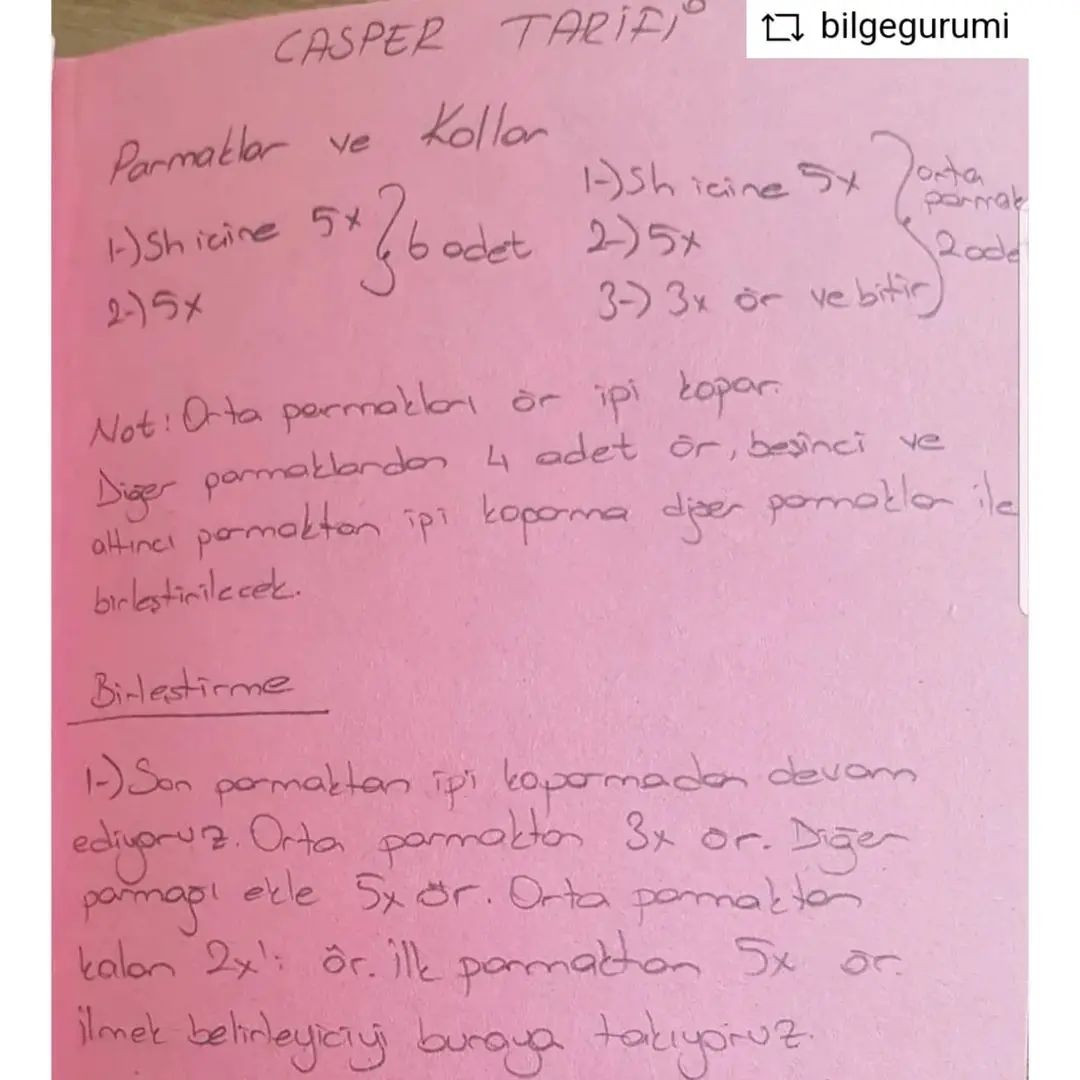 CASPER TARİFİ
bilgegurumi
Parmaklar ve Kollar
1-) Sh içine 5x } 6 adet
2-) 5x
1-) Sh içine 5x
2-) 5x
3-) 3x ör ve bitir
} orta
parmak
2 ade
Not: Orta parmakları ör ipi kopar.
Diğer parmaklardan 4 adet ör, beşinci ve
altıncı parmaktan ipi koparma diğer parmaklar ile
birleştirilecek.
Birleştirme
1-) Son parmaktan ipi koparmadan devam
ediyoruz. Orta parmaktan 3x ör. Diğer
parmağı ekle 5x ör. Orta parmaktan
kalan 2x'i ör. ilk parmaktan 5x ör.
ilmek belirleyiciyi buraya takıyoruz.